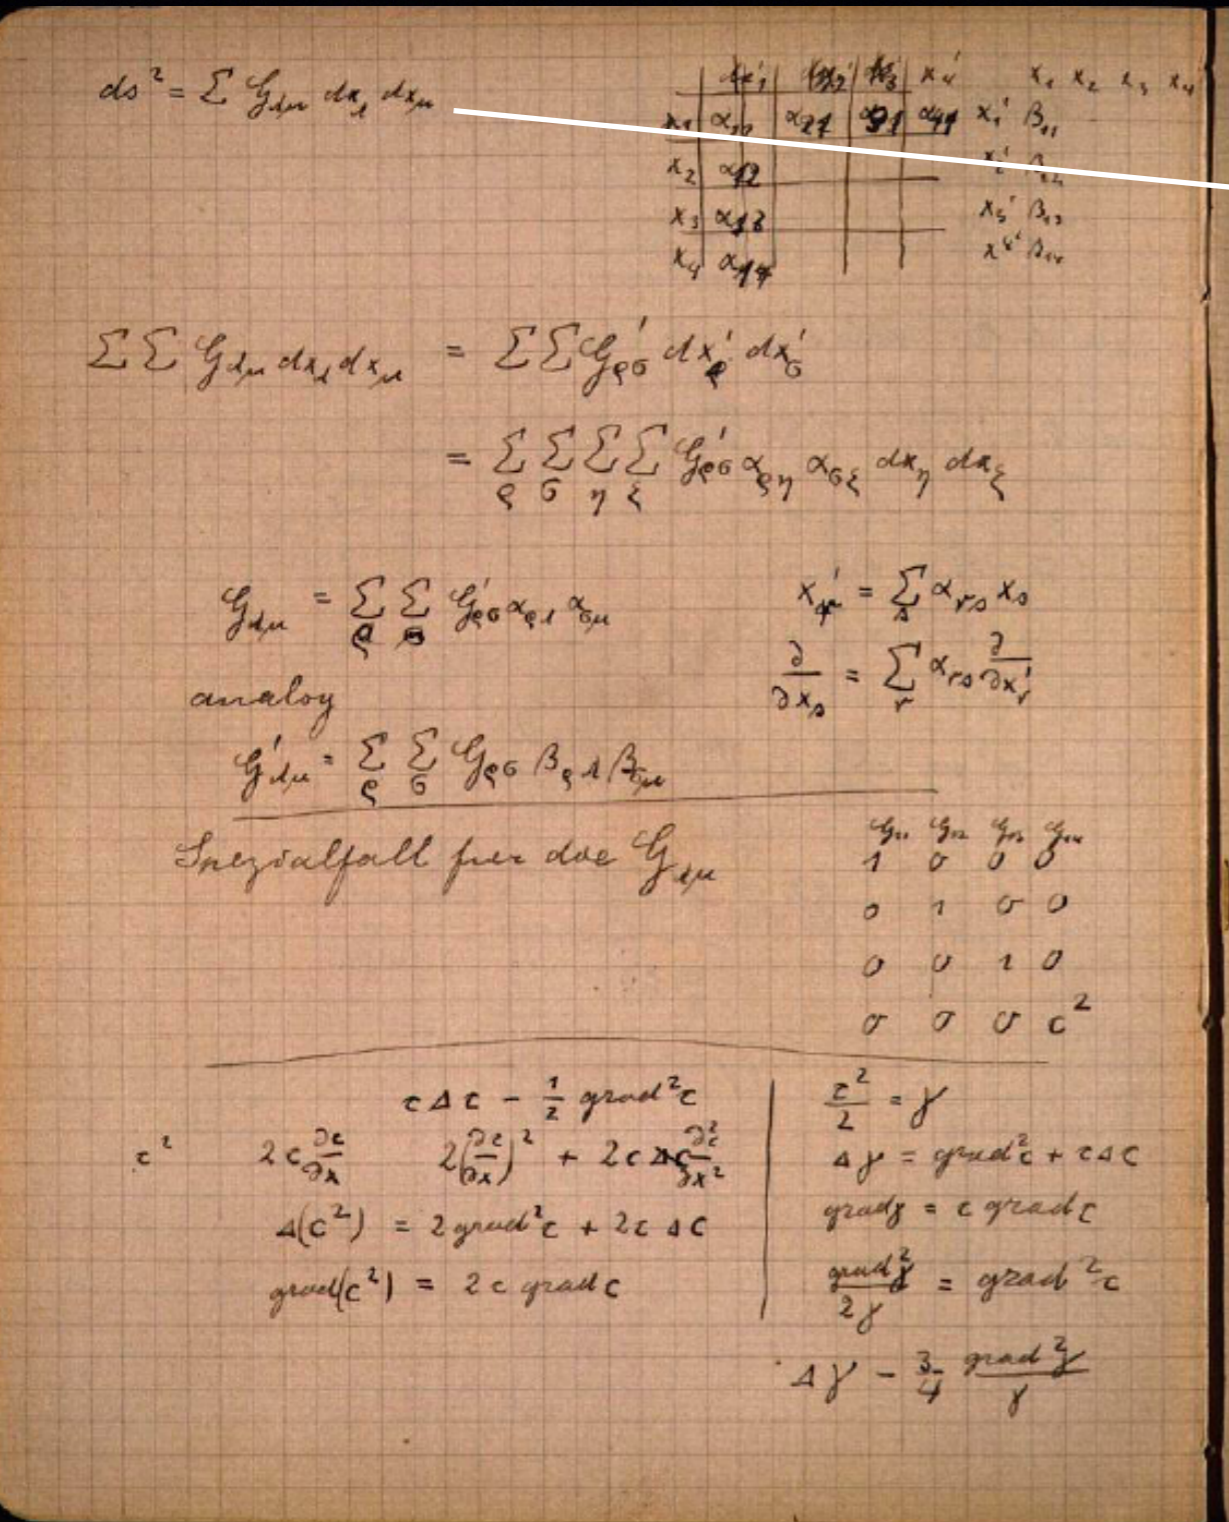 ds² = Σ G_λμ dx_λ dx_μ
x'₄ x₁ x₂ x₃ x₄
x₁ α₁₁ α₂₁ α₃₁ α₄₁ x₁' β₁₁
x₂ α₁₂ x₂' β₁₂
x₃ α₁₃ x₃' β₁₃
x₄ α₁₄ x₄' β₁₄
Σ Σ G_λμ dx_λ dx_μ = Σ Σ G'_ρσ dx'_ρ dx'_σ
= Σ_ρ Σ_σ Σ_η Σ_ξ G'_ρσ α_ρη α_σξ dx_η dx_ξ
G_λμ = Σ_ρ Σ_σ G'_ρσ α_ρλ α_σμ
x'_r = Σ_s α_rs x_s
∂/∂x_s = Σ_r α_rs ∂/∂x'_r
analog
G'_λμ = Σ_ρ Σ_σ G_ρσ β_ρλ β_σμ
Spezialfall für die G_λμ
G₁₁ G₁₂ G₁₃ G₁₄
1 0 0 0
0 1 0 0
0 0 1 0
0 0 0 c²
c Δ c − 1/2 grad² c
c² 2c ∂c/∂x 2(∂c/∂x)² + 2c ∂²c/∂x²
Δ(c²) = 2 grad² c + 2c Δ c
grad(c²) = 2 c grad c
c²/2 = γ
Δγ = grad² c + c Δ c
grad γ = c grad c
grad² γ / 2γ = grad² c
Δγ − 3/4 grad² γ / γ